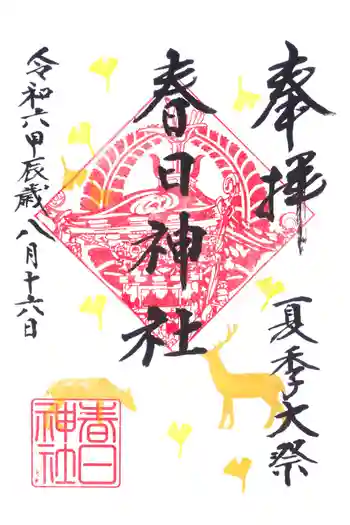 奉拝
夏季大祭
春日神社
令和六甲辰歳八月十六日
春日
神社